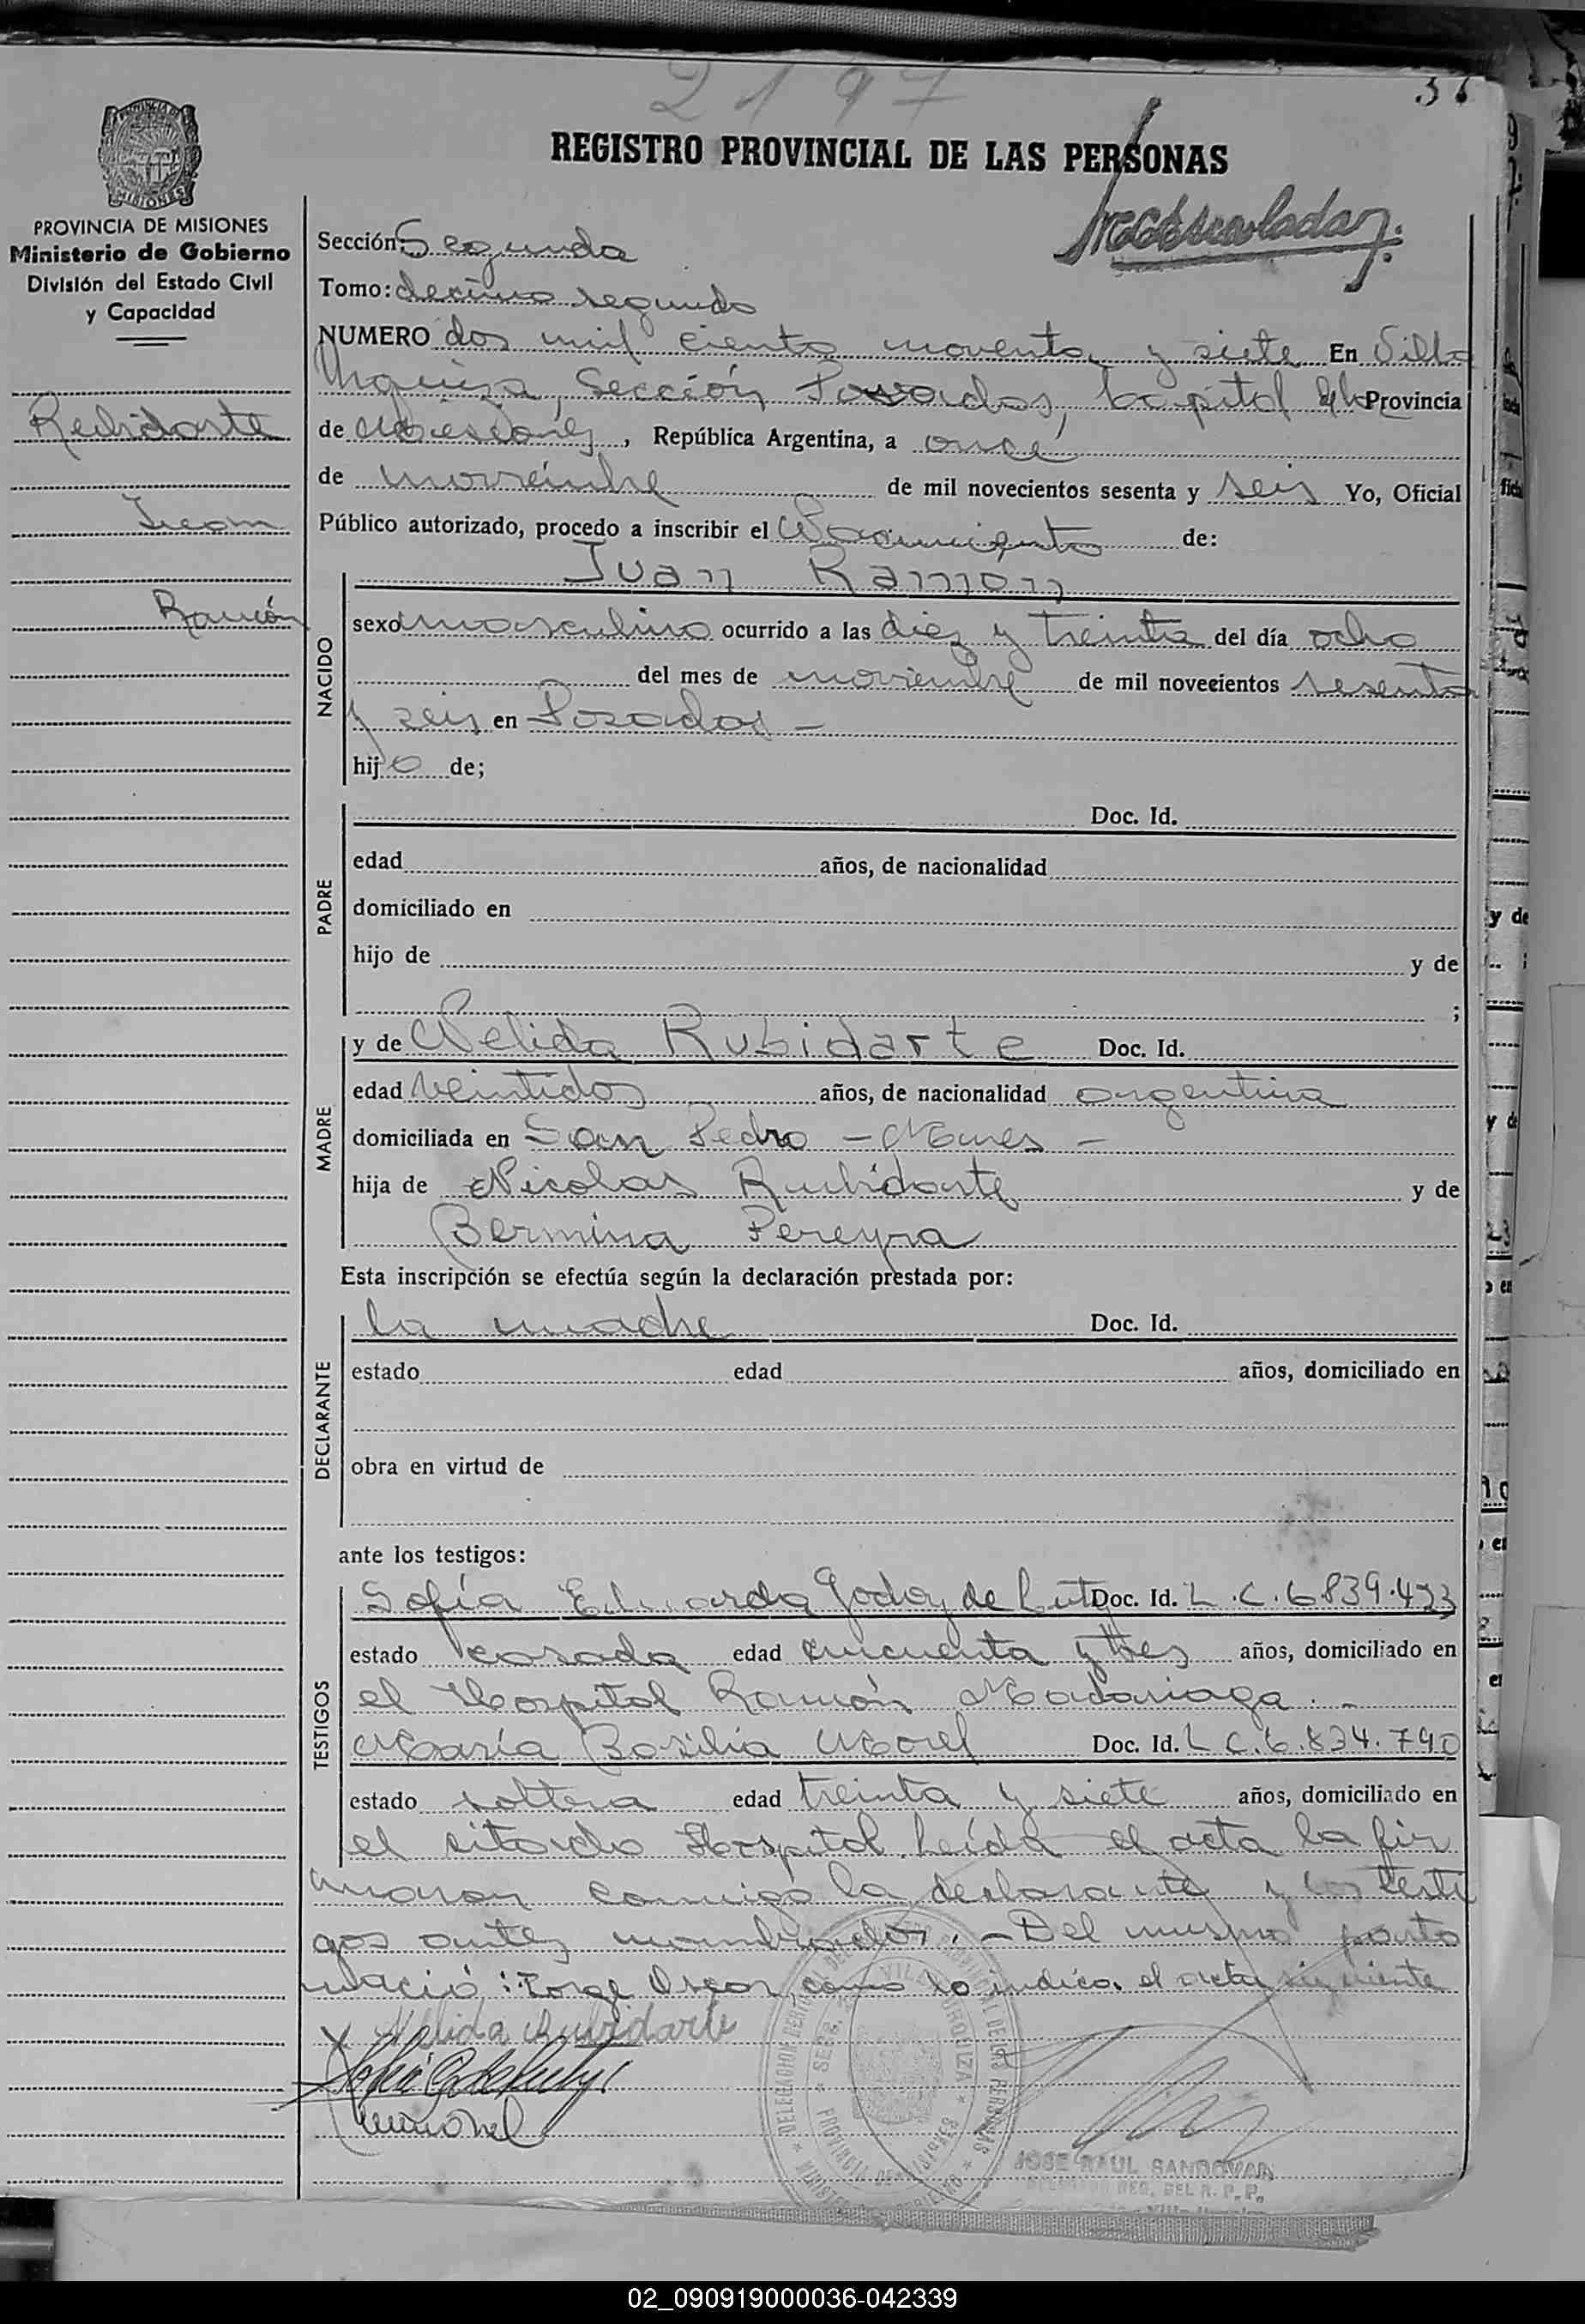 2197
REGISTRO PROVINCIAL DE LAS PERSONAS
PROVINCIA DE MISIONES
Ministerio de Gobierno
División del Estado Civil
y Capacidad
Rubidarte
Juan
Ramón
Sección: Segunda
Tomo: decimo segundo
NUMERO dos mil ciento noventa y siete En Villa
Urquiza, Sección Posadas, Capital de la Provincia
de Misiones, República Argentina, a once
de noviembre de mil novecientos sesenta y seis Yo, Oficial
Público autorizado, procedo a inscribir el Nacimiento de:
Juan Ramón
NACIDO
sexo masculino ocurrido a las diez y treinta del día ocho
del mes de noviembre de mil novecientos sesenta
y seis en Posadas -
hijo de;
PADRE
Doc. Id.
edad años, de nacionalidad
domiciliado en
hijo de y de
;
MADRE
y de Nelida Rubidarte Doc. Id.
edad veintidos años, de nacionalidad argentina
domiciliada en San Pedro - Mnes -
hija de Nicolas Rubidarte y de
Bermina Pereyra
Esta inscripción se efectúa según la declaración prestada por:
DECLARANTE
la madre Doc. Id.
estado edad años, domiciliado en
obra en virtud de
ante los testigos:
TESTIGOS
Sofía Eduarda Godoy de Doc. Id. L.C. 6839.433
estado casada edad cincuenta y tres años, domiciliado en
el Hospital Ramón Madariaga. -
María Basilia Morel Doc. Id. L C. 6.834.790
estado soltera edad treinta y siete años, domiciliado en
el citado Hospital. Leída el acta la fir
maron conmigo la declarante y los testi
gos antes nombrados. - Del mismo parto
nació: Jorge Oscar, como lo indica el acta siguiente
x Nelida Rubidarte
VILLA URQUIZA
PROVINCIA DE MISIONES
JOSE RAUL SANDOVAL
DEL R. P. P.
02_090919000036-042339